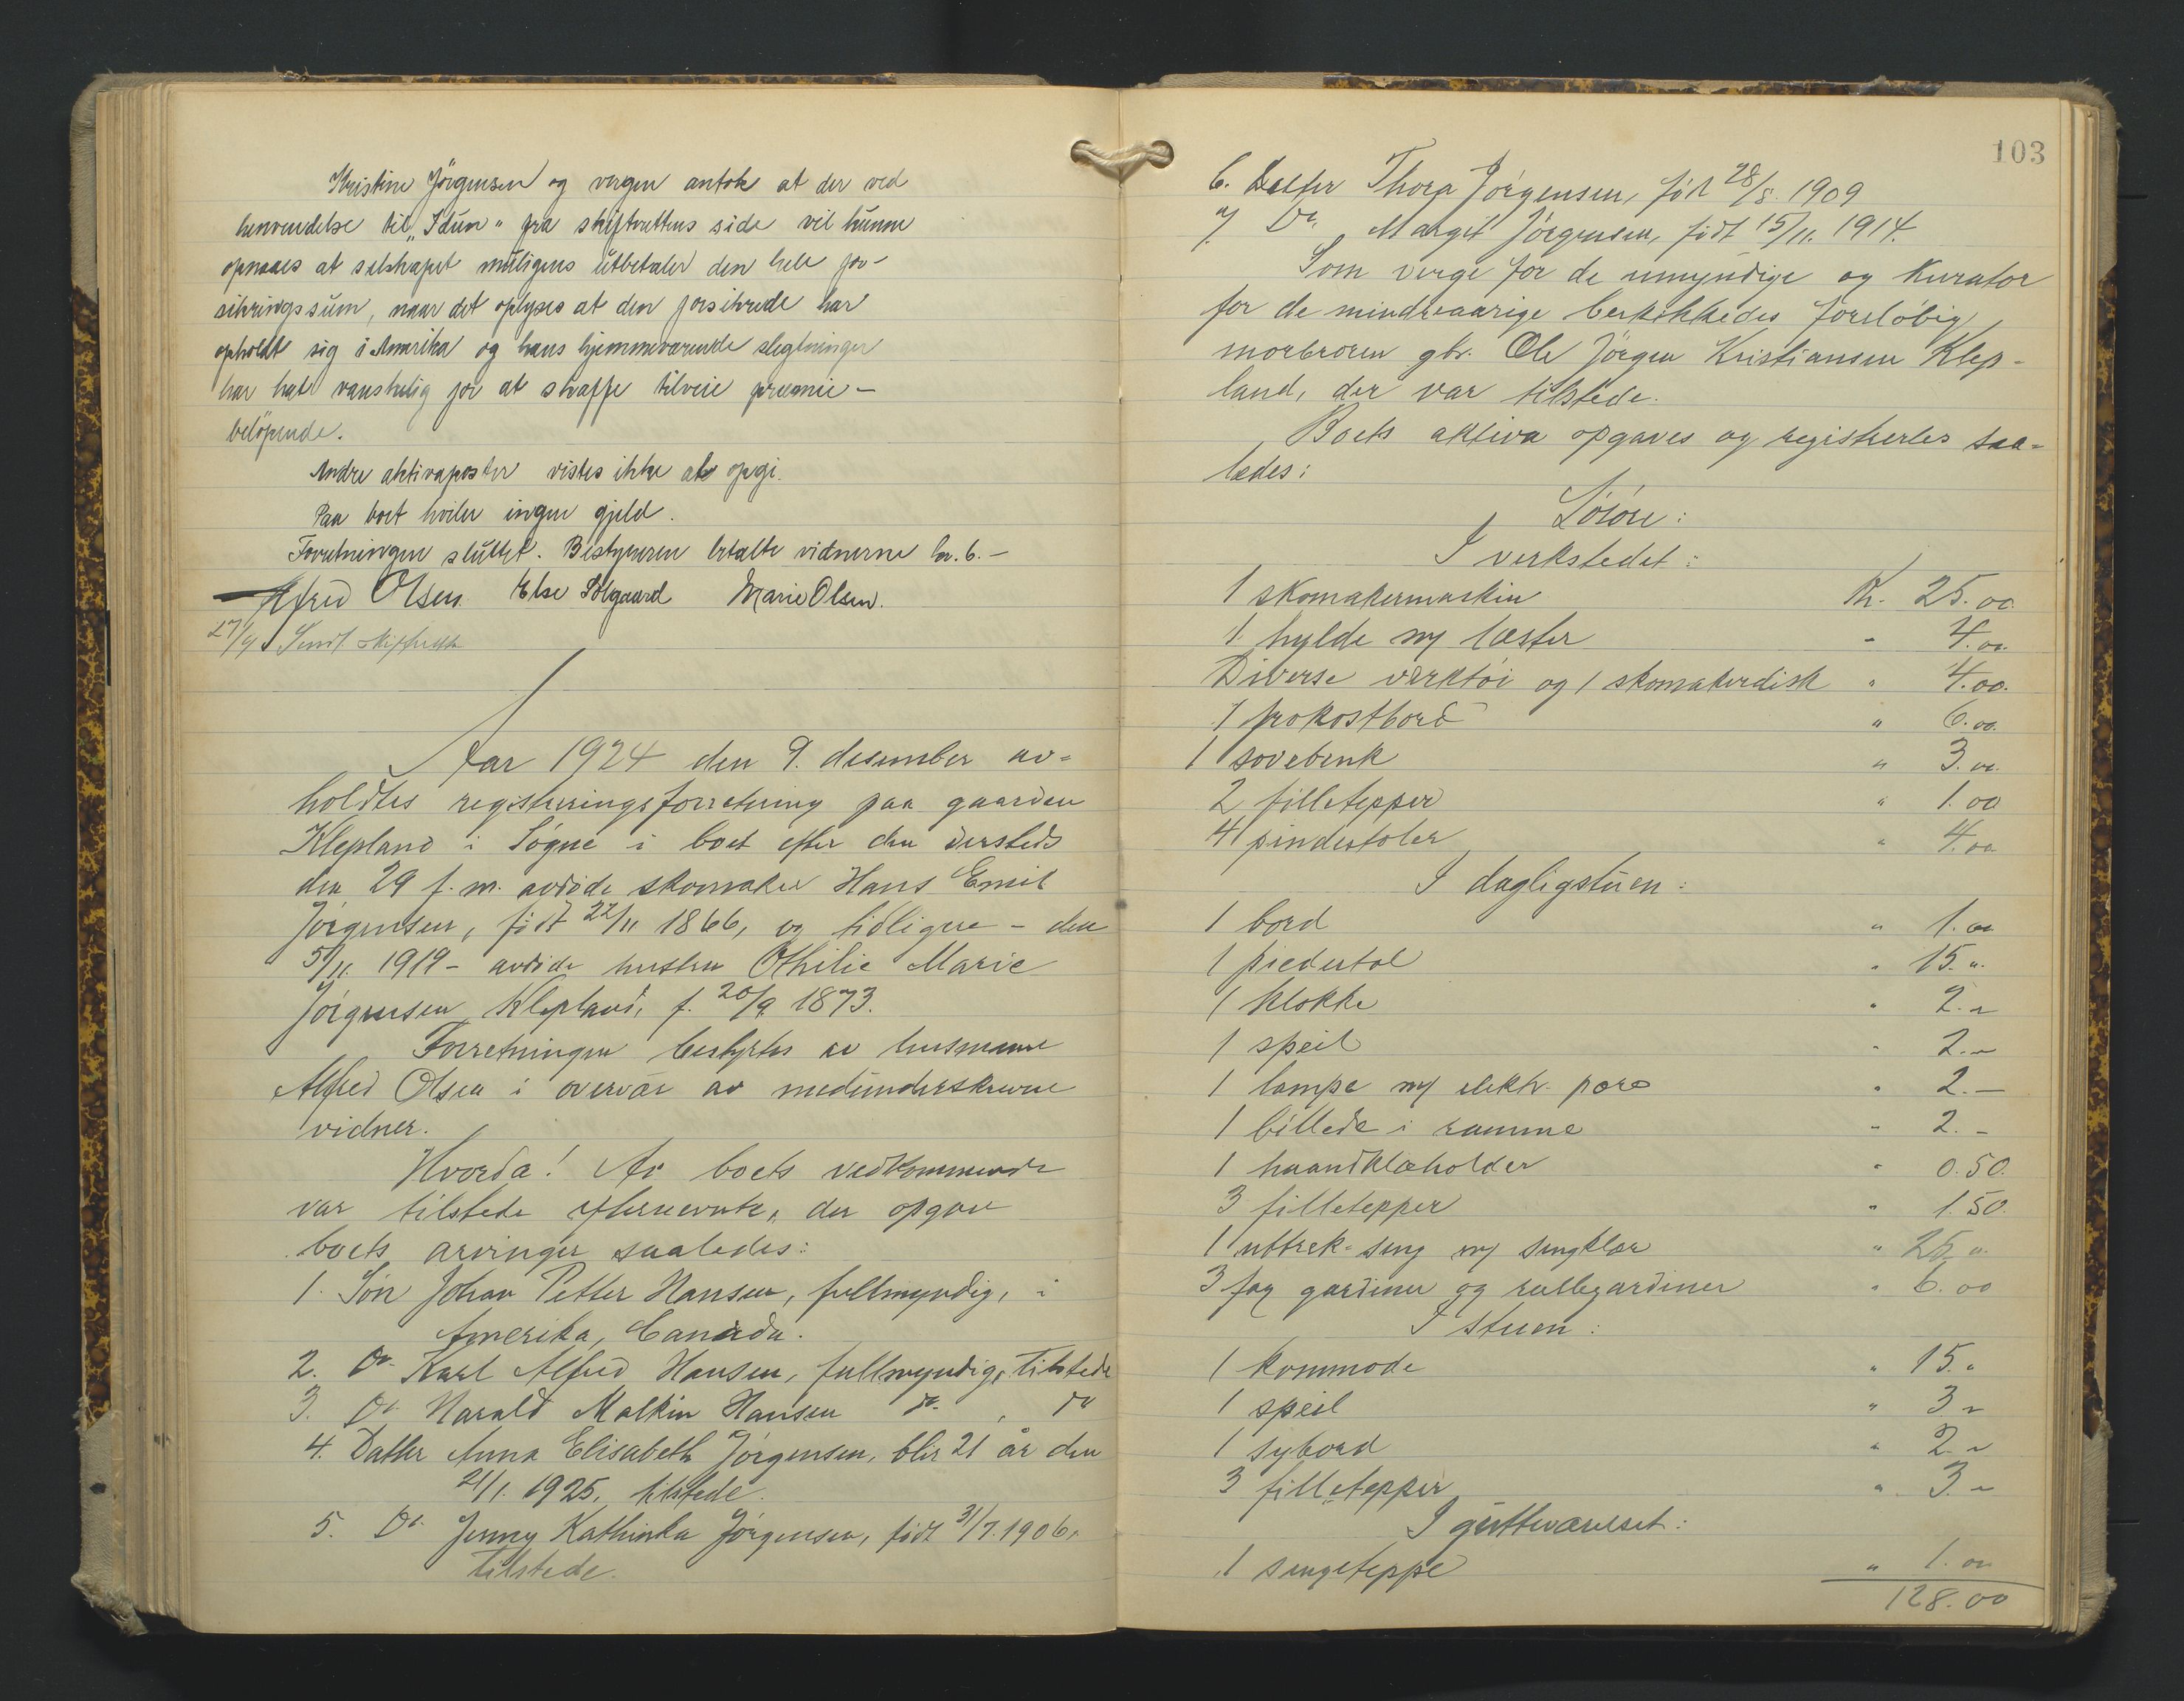 Kristine Jörgensen og vergen antok at der ved
henvendelse til "Idun" fra skifterettens side vil kunne
opnaaes at selskapet muligens utbetaler den hele for-
sikringssum, naar det oplyses at den forsikrede har
opholdt sig i Amerika og hans hjemmeværende slegtninger
har hat vanskelig for at skaffe tilveie præmie-
belöpende.
Andre aktivaposter vistes ikke at opgi.
Paa boet hviler ingen gjeld.
Forretningen sluttet. Bestyreren betalte vidnerne kr. 6.-
Alfred Olsen. Else Solgaard Marie Olsen.
27/9 Sendt skifterett
Aar 1924 den 9. desember av-
holdtes registreringsforretning paa gaarden
Klepland i Søgne i boet efter den dersteds
den 29 f. m. avdöde skomaker Hans Emil
Jörgensen, född 22/11 1866, og tidligere - den
5/11. 1919 - avdöde hustru Othilie Marie
Jörgensen Klepland, f. 20/9 1873.
Forretningen bestyrtes av lensmann
Alfred Olsen i overvær av medunderskrevne
vidner.
Hvorda! Av boets vedkommende
var tilstede efternevnte, der opgav
boets arvinger saaledes:
1. Sön Johan Petter Hansen, fullmyndig, i
Amerika, Canada.
2. Do Karl Alfred Hansen, fullmyndig, tilstede
3. Do Harald Malkin Hansen do. , do
4. Datter Anna Elisabeth Jörgensen, blir 21 år den
21/1. 1925, tilstede.
5. Do. Jenny Kathinka Jörgensen, födt 31/7. 1906,
tilstede.
103
6. Datter Thora Jörgensen, födt 28/8. 1909
7. Do. Margit Jörgensen, födt 15/11. 1914.
Som verge for de umyndige og kurator
for de mindreaarige beskikkedes foreløbig
morbroren gbr. Ole Jörgen Kristiansen Klep-
land, der var tilstede.
Boets aktiva opgaves og registrertes saa-
ledes:
Lösöre:
I verkstedet:
1 skomakermaskin Kr. 25.00
1 hylde m/ læster - 4.00
Diverse verktöi og 1 skomakerdisk " 4.00.
1 frokostbord " 6.00.
1 sovebenk " 3.00.
2 filletepper " 1.00
4 pindestoler " 4.00
I dagligstuen:
1 bord " 1.00
1 piedestal " 15.-
1 klokke " 2.-
1 speil " 2.-
1 lampe m/ elektr. pære " 2.-
1 billede i ramme " 2.-
1 haandklæholder " 0.50.
3 filletepper " 1.50.
1 uttrek-seng m/ sengklær " 25.-
3 fag gardiner og rullegardiner " 6.00
I stuen:
1 kommode " 15.-
1 speil " 3.-
1 sybord " 2.-
3 filletepper " 3.-
I gutteværelset:
1 sengeteppe " 1.00
128.00